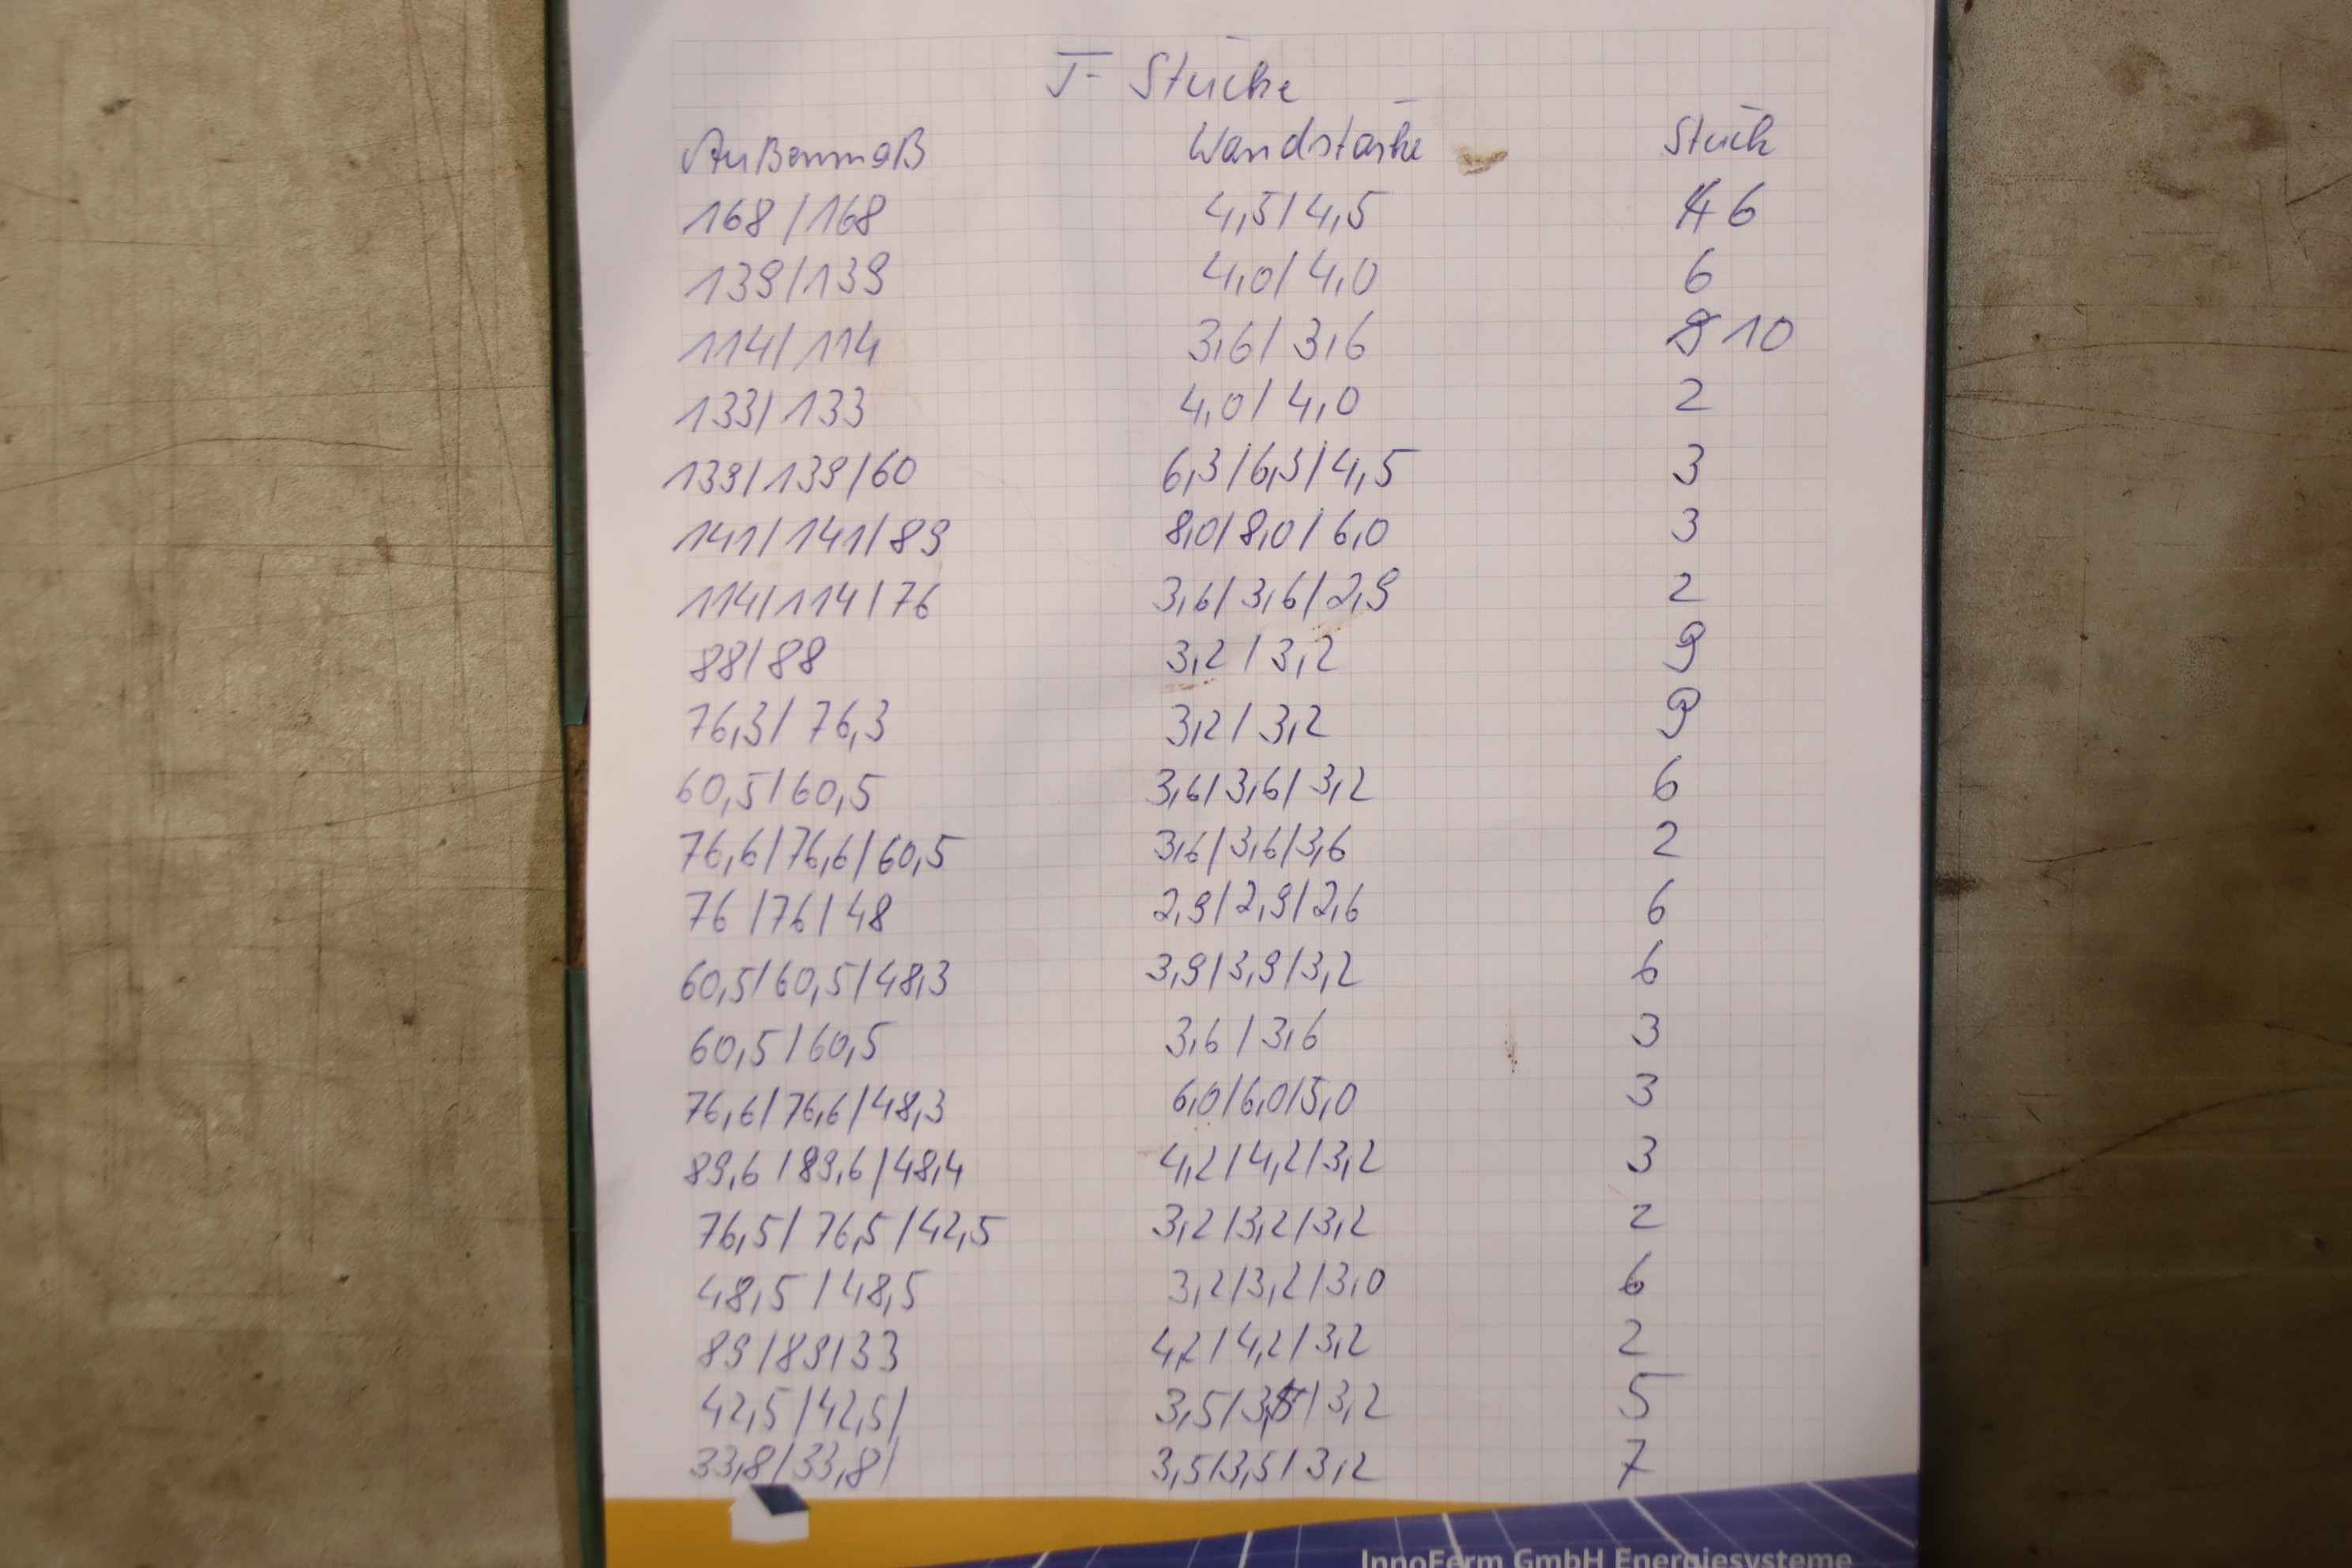 T- Stücke
Außenmaß Wandstärke Stück
168/168 4,5/4,5 6
139/139 4,0/4,0 6
114/114 3,6/3,6 10
133/133 4,0/4,0 2
139/139/60 6,3/6,3/4,5 3
141/141/89 8,0/8,0/6,0 3
114/114/76 3,6/3,6/2,9 2
88/88 3,2/3,2 9
76,3/76,3 3,2/3,2 9
60,5/60,5 3,6/3,6/3,2 6
76,6/76,6/60,5 3,6/3,6/3,6 2
76/76/48 2,9/2,9/2,6 6
60,5/60,5/48,3 3,9/3,9/3,2 6
60,5/60,5 3,6/3,6 3
76,6/76,6/48,3 6,0/6,0/5,0 3
89,6/89,6/48,4 4,2/4,2/3,2 3
76,5/76,5/42,5 3,2/3,2/3,2 2
48,5/48,5 3,2/3,2/3,0 6
89/89/33 4,2/4,2/3,2 2
42,5/42,5/ 3,5/3,5/3,2 5
33,8/33,8/ 3,5/3,5/3,2 7
InnoFerm GmbH Energiesysteme